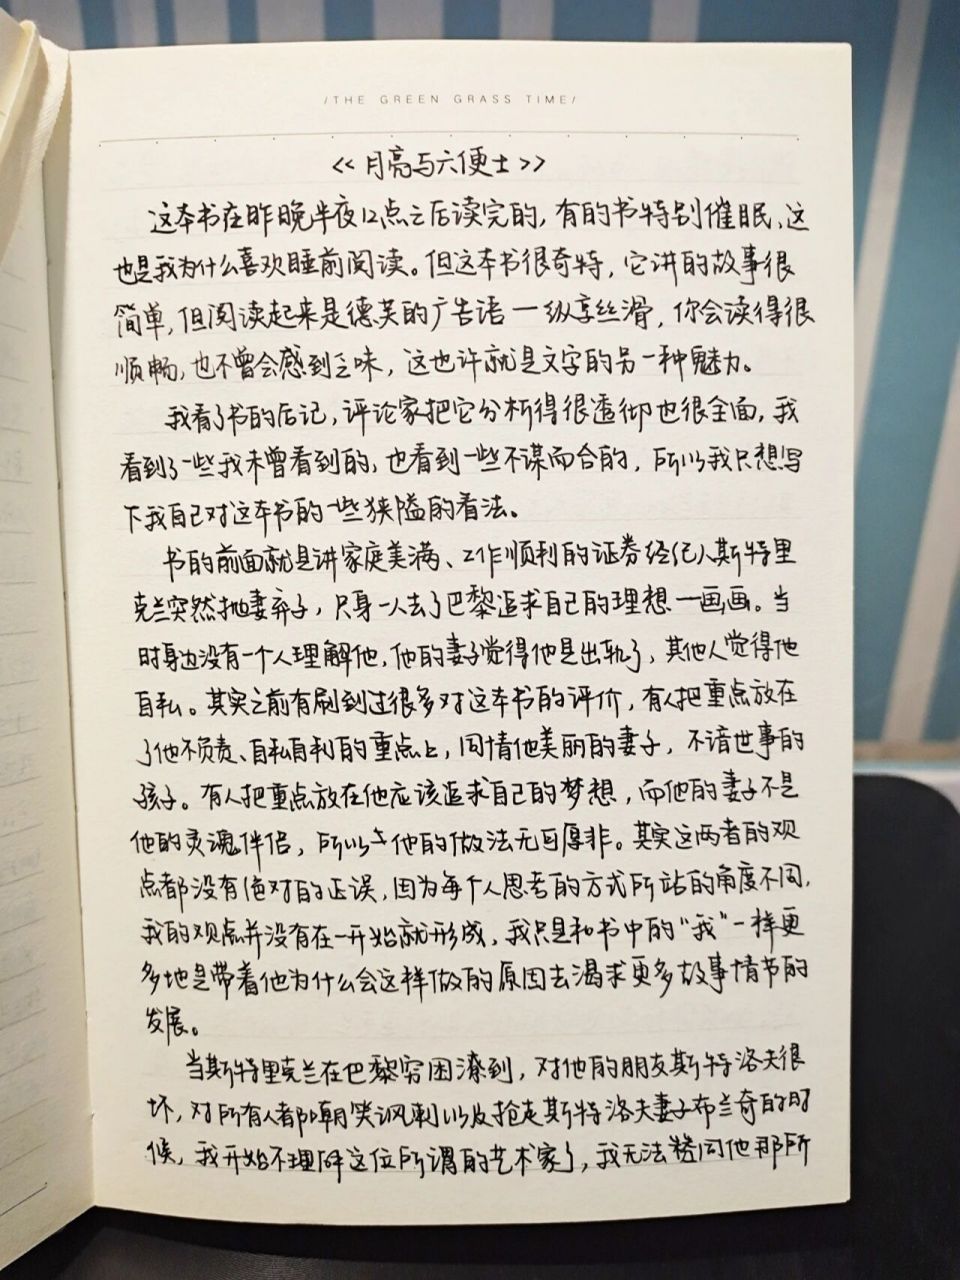 /THE GREEN GRASS TIME/
<<月亮与六便士>>
这本书在昨晚半夜12点之后读完的，有的书特别催眠、这
也是我为什么喜欢睡前阅读。但这本书很奇特，它讲的故事很
简单，但阅读起来是德芙的广告语一纵享丝滑，你会读得很
顺畅，也不曾会感到乏味，这也许就是文字的另一种魅力。
我看了书的后记，评论家把它分析得很透彻也很全面，我
看到了一些我未曾看到的，也看到一些不谋而合的，所以我只想写
下我自己对这本书的一些狭隘的看法。
书的前面就是讲家庭美满、工作顺利的证券经纪人斯特里
克兰突然抛妻弃子，只身一人去了巴黎追求自己的理想一画画。当
时身边没有一个人理解他，他的妻子觉得他是出轨了，其他人觉得他
自私。其实之前有刷到过很多对这本书的评价，有人把重点放在
了他不负责、自私自利的重点上，同情他美丽的妻子，不谙世事的
孩子。有人把重点放在他应该追求自己的梦想，而他的妻子不是
他的灵魂伴侣，所以他的做法无可厚非。其实这两者的观
点都没有绝对的正误，因为每个人思考的方式所站的角度不同，
我的观点并没有在一开始就形成，我只是和书中的“我”一样更
多地是带着他为什么会这样做的原因去渴求更多故事情节的
发展。
当斯特里克兰在巴黎穷困潦到，对他的朋友斯特洛夫很
坏，对所有人都嘲笑讽刺以及抢走斯特洛夫妻子布兰奇的时
候，我开始不理解这位所谓的艺术家了，我无法赞同他那所